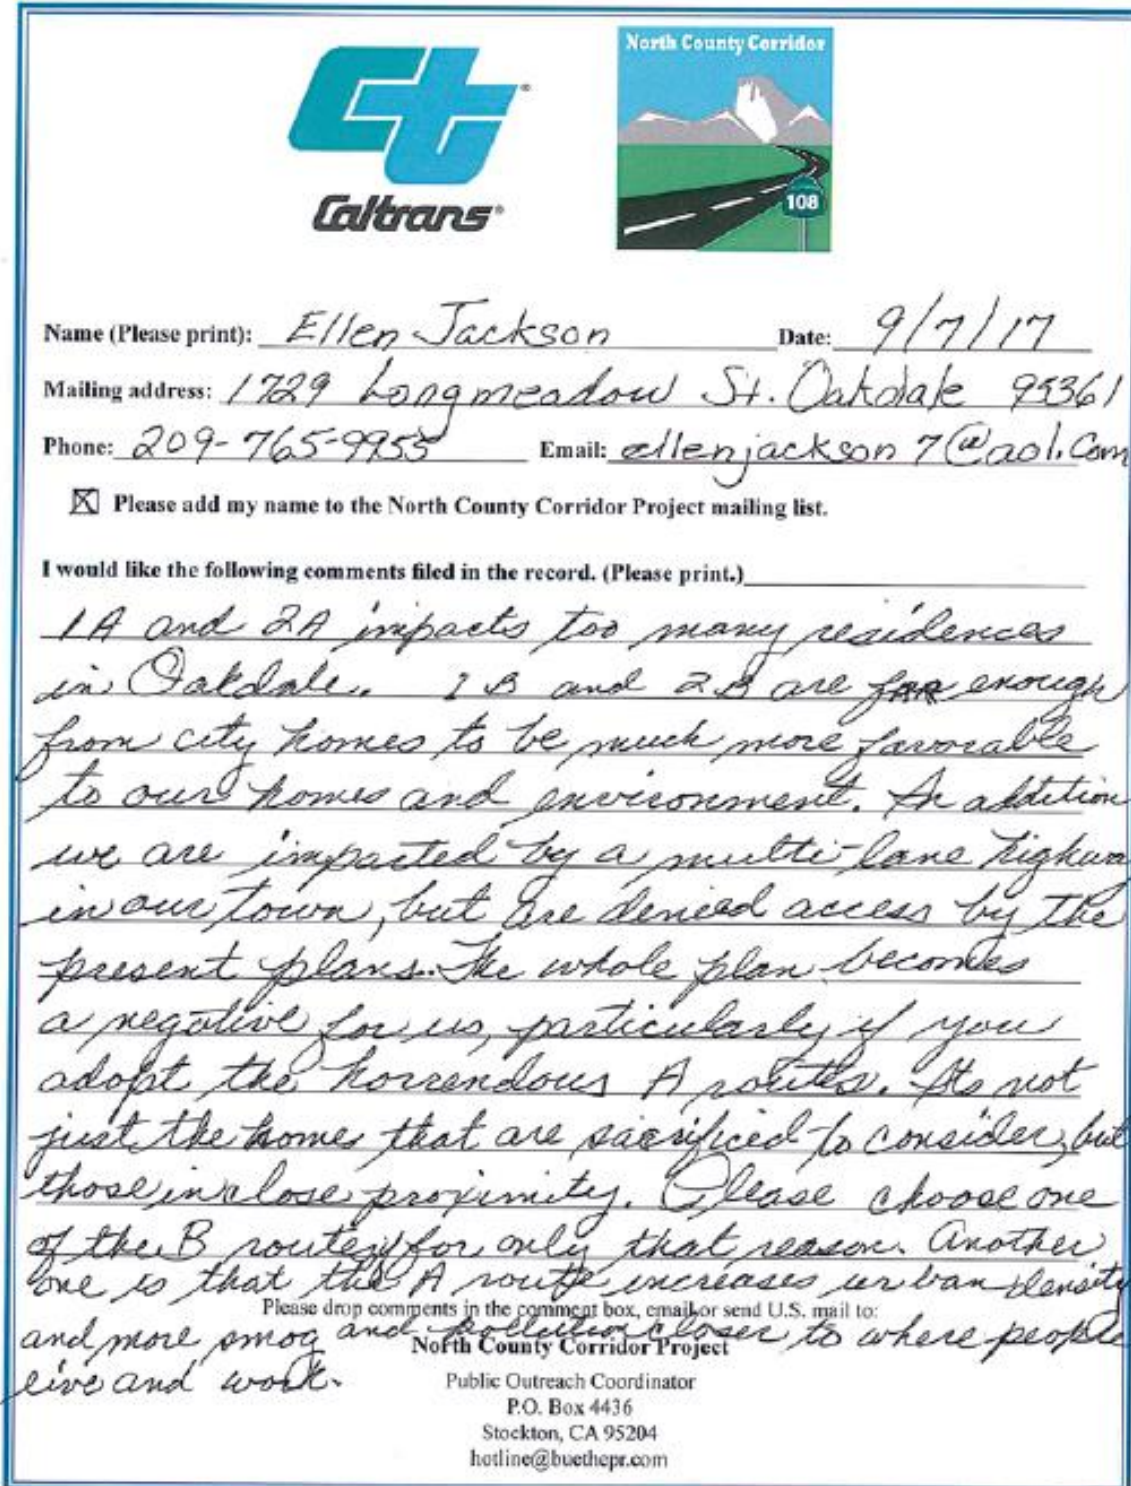 North County Corridor
Ct
Caltrans
108
Name (Please print): Ellen Jackson Date: 9/7/17
Mailing address: 1729 Longmeadow St. Oakdale 95361
Phone: 209-765-9955 Email: ellenjackson7@aol.com
☒ Please add my name to the North County Corridor Project mailing list.
I would like the following comments filed in the record. (Please print.)
1A and 2A impacts too many residences
in Oakdale. 1B and 2B are far enough
from city homes to be much more favorable
to our homes and environment. In addition
we are impacted by a multi-lane highwa
in our town, but are denied access by the
present plans. The whole plan becomes
a negative for us, particularly if you
adopt the horrendous A routes. Its not
just the homes that are sacrificed to consider, but
those in close proximity. Please choose one
of the B routes for only that reason. Another
one is that the A route increases urban density
Please drop comments in the comment box, email or send U.S. mail to:
and more smog and pollution closer to where people
North County Corridor Project
live and work.
Public Outreach Coordinator
P.O. Box 4436
Stockton, CA 95204
hotline@buethepr.com